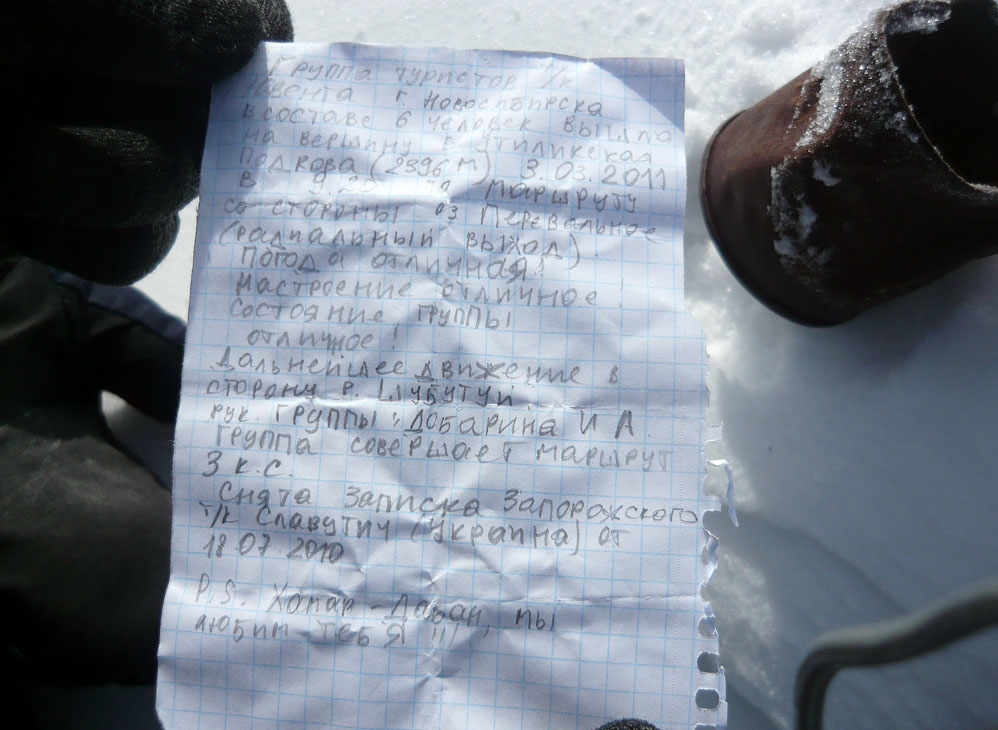 Группа туристов т/к
Ювента г. Новосибирска
в составе 6 человек вышла
на вершину в. Утуликская
Подкова (2396 м) 3.03.2011
в маршруту
со стороны оз Перевальное
(радиальный выход)
Погода отличная!
Настроение отличное!
Состояние группы
отличное!
Дальнейшее движение в
сторону р. Шубутуй.
рук. группы: Добарина И А.
Группа совершает маршрут
3 к.с.
Снята записка Запорожского
т/к Славутич (Украина) от
18.07.2010
P.S. Хамар-Дабан, мы
любим тебя!!!